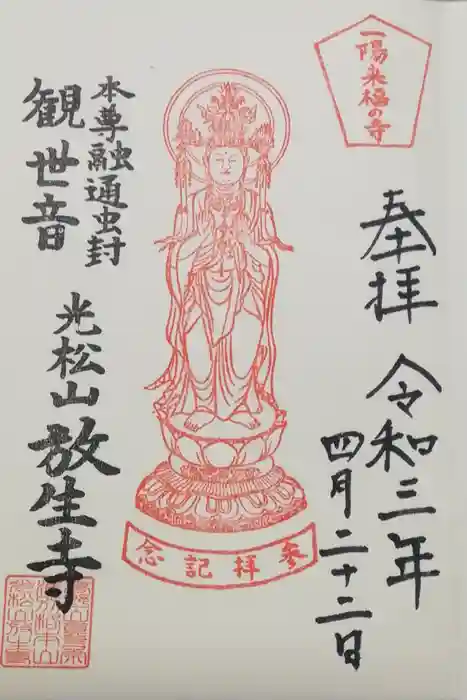 一陽来福の寺
奉拝
令和三年
四月二十二日
参拝記念
本尊融通虫封
観世音
光松山
放生寺